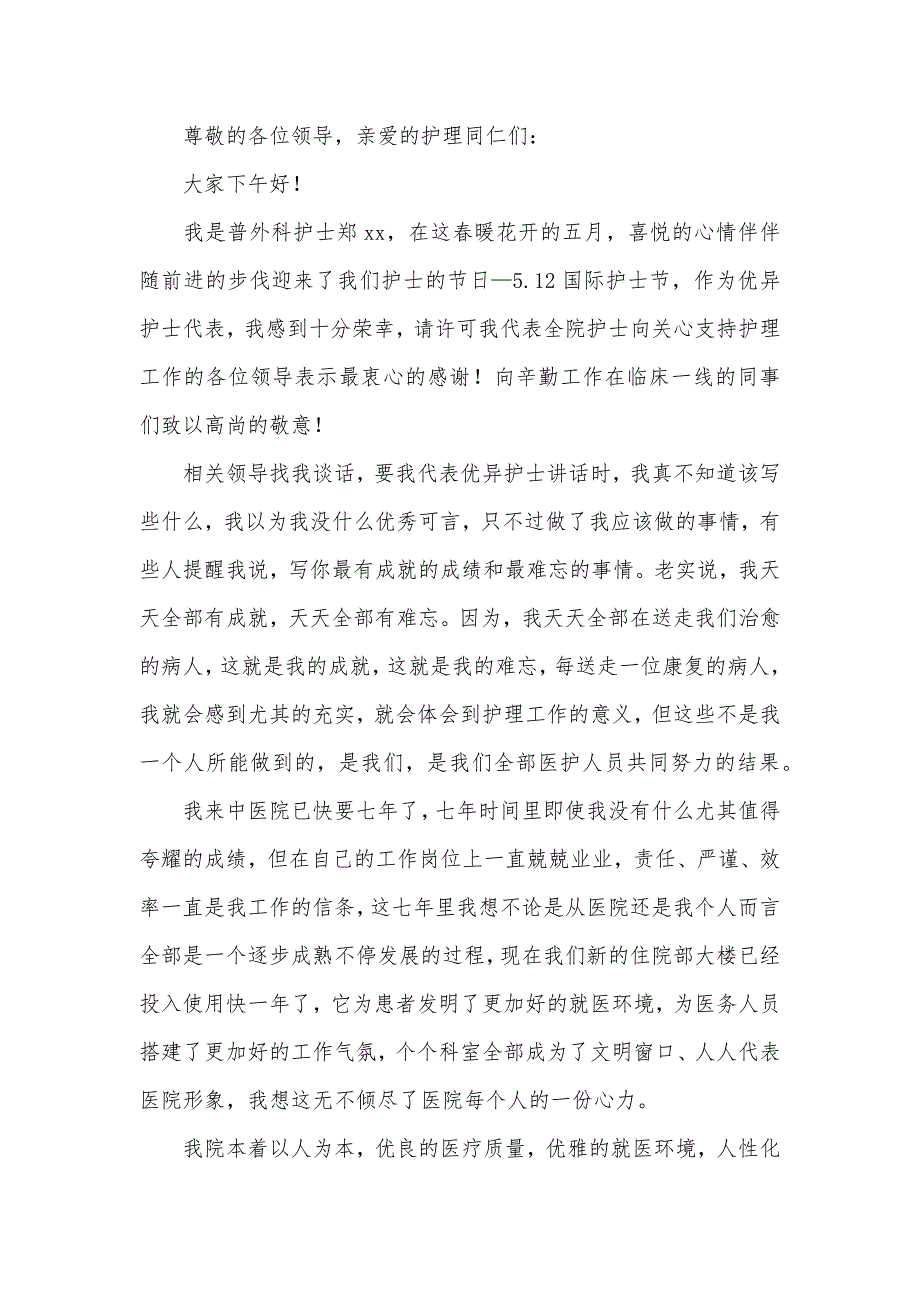 尊敬的各位领导，亲爱的护理同仁们：
大家下午好！
我是普外科护士郑 xx，在这春暖花开的五月，喜悦的心情伴伴
随前进的步伐迎来了我们护士的节日—5.12 国际护士节，作为优异
护士代表，我感到十分荣幸，请许可我代表全院护士向关心支持护理
工作的各位领导表示最衷心的感谢！向辛勤工作在临床一线的同事
们致以高尚的敬意！
相关领导找我谈话，要我代表优异护士讲话时，我真不知道该写
些什么，我以为我没什么优秀可言，只不过做了我应该做的事情，有
些人提醒我说，写你最有成就的成绩和最难忘的事情。老实说，我天
天全部有成就，天天全部有难忘。因为，我天天全部在送走我们治愈
的病人，这就是我的成就，这就是我的难忘，每送走一位康复的病人，
我就会感到尤其的充实，就会体会到护理工作的意义，但这些不是我
一个人所能做到的，是我们，是我们全部医护人员共同努力的结果。
我来中医院已快要七年了，七年时间里即使我没有什么尤其值得
夸耀的成绩，但在自己的工作岗位上一直兢兢业业，责任、严谨、效
率一直是我工作的信条，这七年里我想不论是从医院还是我个人而言
全部是一个逐步成熟不停发展的过程，现在我们新的住院部大楼已经
投入使用快一年了，它为患者发明了更加好的就医环境，为医务人员
搭建了更加好的工作气氛，个个科室全部成为了文明窗口、人人代表
医院形象，我想这无不倾尽了医院每个人的一份心力。
我院本着以人为本，优良的医疗质量，优雅的就医环境，人性化